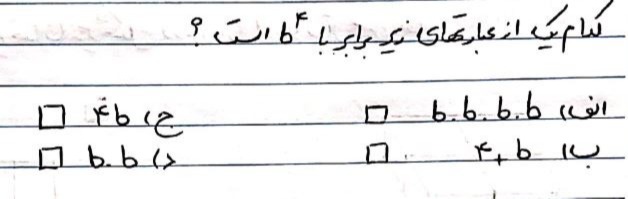 کدام یک از عبارتهای زیر برابر با b^۴ است؟
الف) b.b.b.b □ ج) ۴b □
ب) ۴+b □ د) b.b □